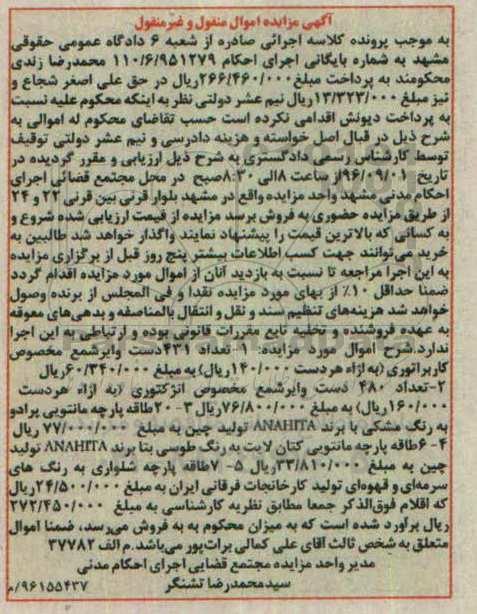 آگهی مزایده اموال منقول و غیرمنقول
به موجب پرونده کلاسه اجرائی صادره از شعبه ۶ دادگاه عمومی حقوقی
مشهد به شماره بایگانی اجرای احکام ۱۱۰/۶/۹۵۱۲۷۹ محمدرضا زندی
محکومند به پرداخت مبلغ ۲۶۶/۴۶۰/۰۰۰ریال در حق علی اصغر شجاع و
نیز مبلغ ۱۳/۳۲۳/۰۰۰ریال نیم عشر دولتی نظر به اینکه محکوم علیه نسبت
به پرداخت دیونش اقدامی نکرده است حسب تقاضای محکوم له اموالی به
شرح ذیل در قبال اصل خواسته و هزینه دادرسی و نیم عشر دولتی توقیف
توسط کارشناس رسمی دادگستری به شرح ذیل ارزیابی و مقرر گردیده در
تاریخ ۹۶/۰۹/۰۱از ساعت ۸الی ۸:۳۰صبح در محل مجتمع قضائی اجرای
احکام مدنی مشهد واحد مزایده واقع در مشهد بلوار قرنی بین قرنی ۲۲ و ۲۴
از طریق مزایده حضوری به فروش برسد مزایده از قیمت ارزیابی شده شروع و
به کسانی که بالاترین قیمت را پیشنهاد نمایند واگذار خواهد شد طالبین به
خرید می‌توانند جهت کسب اطلاعات بیشتر پنج روز قبل از برگزاری مزایده
به این اجرا مراجعه تا نسبت به بازدید آنان از اموال مورد مزایده اقدام گردد
ضمنا حداقل ۱۰٪ از بهای مورد مزایده نقدا و فی المجلس از برنده وصول
خواهد شد هزینه‌های تنظیم سند و نقل و انتقال بالمناصفه و بدهی‌های معوقه
به عهده فروشنده و تخلیه تابع مقررات قانونی بوده و ارتباطی به این اجرا
ندارد.شرح اموال مورد مزایده: ۱- تعداد ۴۳۱دست وایرشمع مخصوص
کاربراتوری (به ازاء هر دست ۱۴۰/۰۰۰ریال) به مبلغ ۶۰/۳۴۰/۰۰۰ریال
۲-تعداد ۴۸۰ دست وایرشمع مخصوص انژکتوری (به ازاء هردست
۱۶۰/۰۰۰ریال) به مبلغ ۷۶/۸۰۰/۰۰۰ریال ۳- ۲۰طاقه پارچه مانتویی پرادو
به رنگ مشکی با برند ANAHITA تولید چین به مبلغ ۷۷/۰۰۰/۰۰۰ ریال
۴- ۶طاقه پارچه مانتویی کتان لایت به رنگ طوسی بتا برند ANAHITA تولید
چین به مبلغ ۳۳/۸۱۰/۰۰۰ریال ۵- ۷طاقه پارچه شلواری به رنگ های
سرمه‌ای و قهوه‌ای تولید کارخانجات فرقانی ایران به مبلغ ۲۴/۵۰۰/۰۰۰ریال
که اقلام فوق‌الذکر جمعا مطابق نظریه کارشناسی به مبلغ ۲۷۲/۴۵۰/۰۰۰
ریال برآورد شده است که به میزان محکوم به به فروش می‌رسد، ضمنا اموال
متعلق به شخص ثالث آقای علی کمالی برات‌پور می‌باشد.م الف ۳۷۷۸۲
مدیر واحد مزایده مجتمع قضایی اجرای احکام مدنی
سیدمحمدرضا تشنگر
۹۶۱۵۵۴۳۷/م